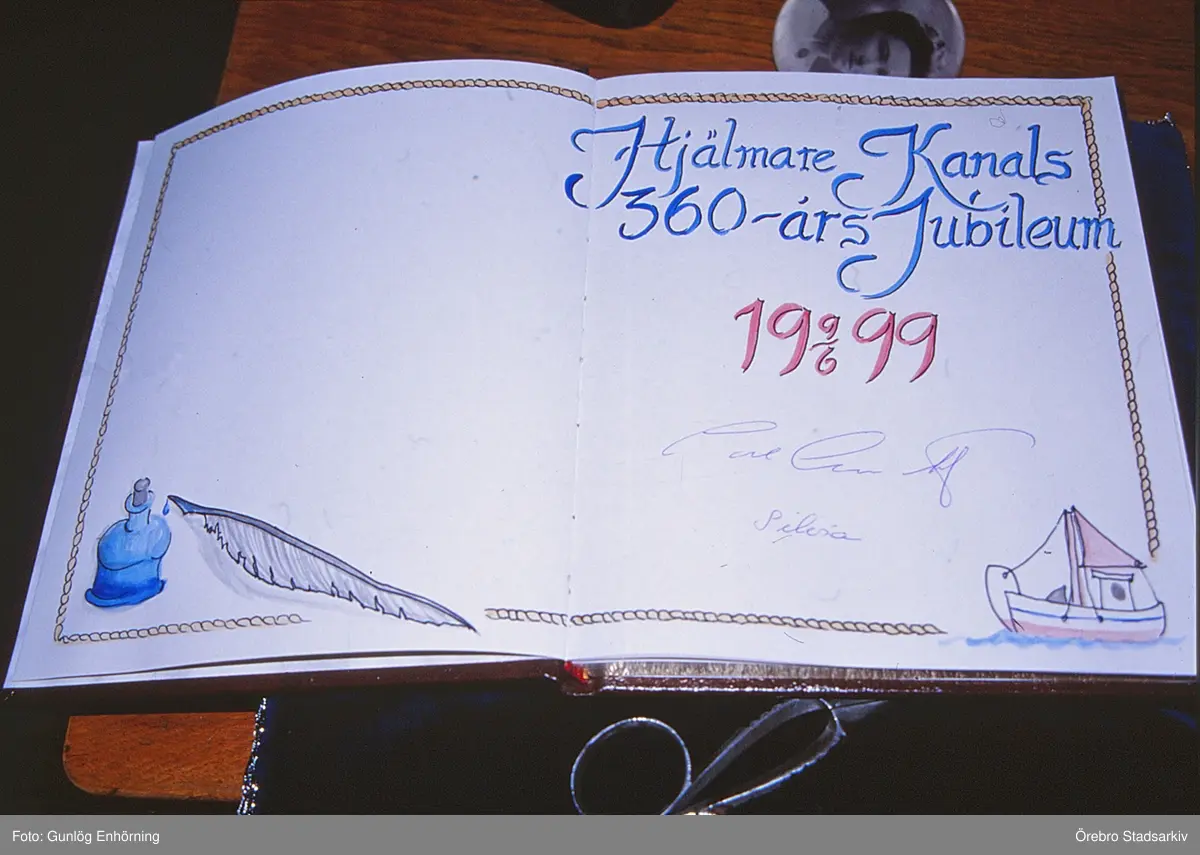 Hjälmare Kanals
360-års Jubileum
19 9/6 99
Carl Gustaf
Silvia
Foto: Gunlög Enhörning
Örebro Stadsarkiv